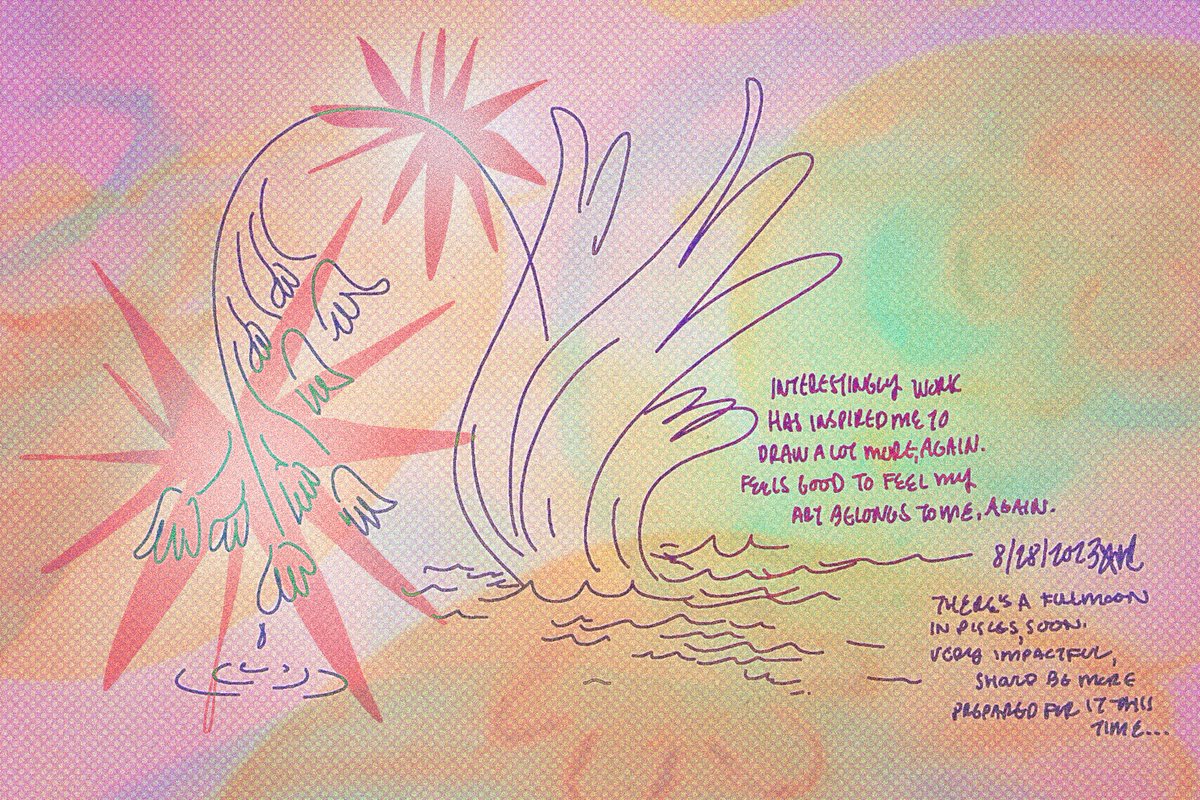 INTERESTINGLY WORK
HAS INSPIRED ME TO
DRAW A LOT MORE, AGAIN.
FEELS GOOD TO FEEL MY
ART BELONGS TO ME, AGAIN.
8/28/2023
THERE'S A FULLMOON
IN PISCES, SOON.
VERY IMPACTFUL,
SHOULD BE MORE
PREPARED FOR IT THIS
TIME...